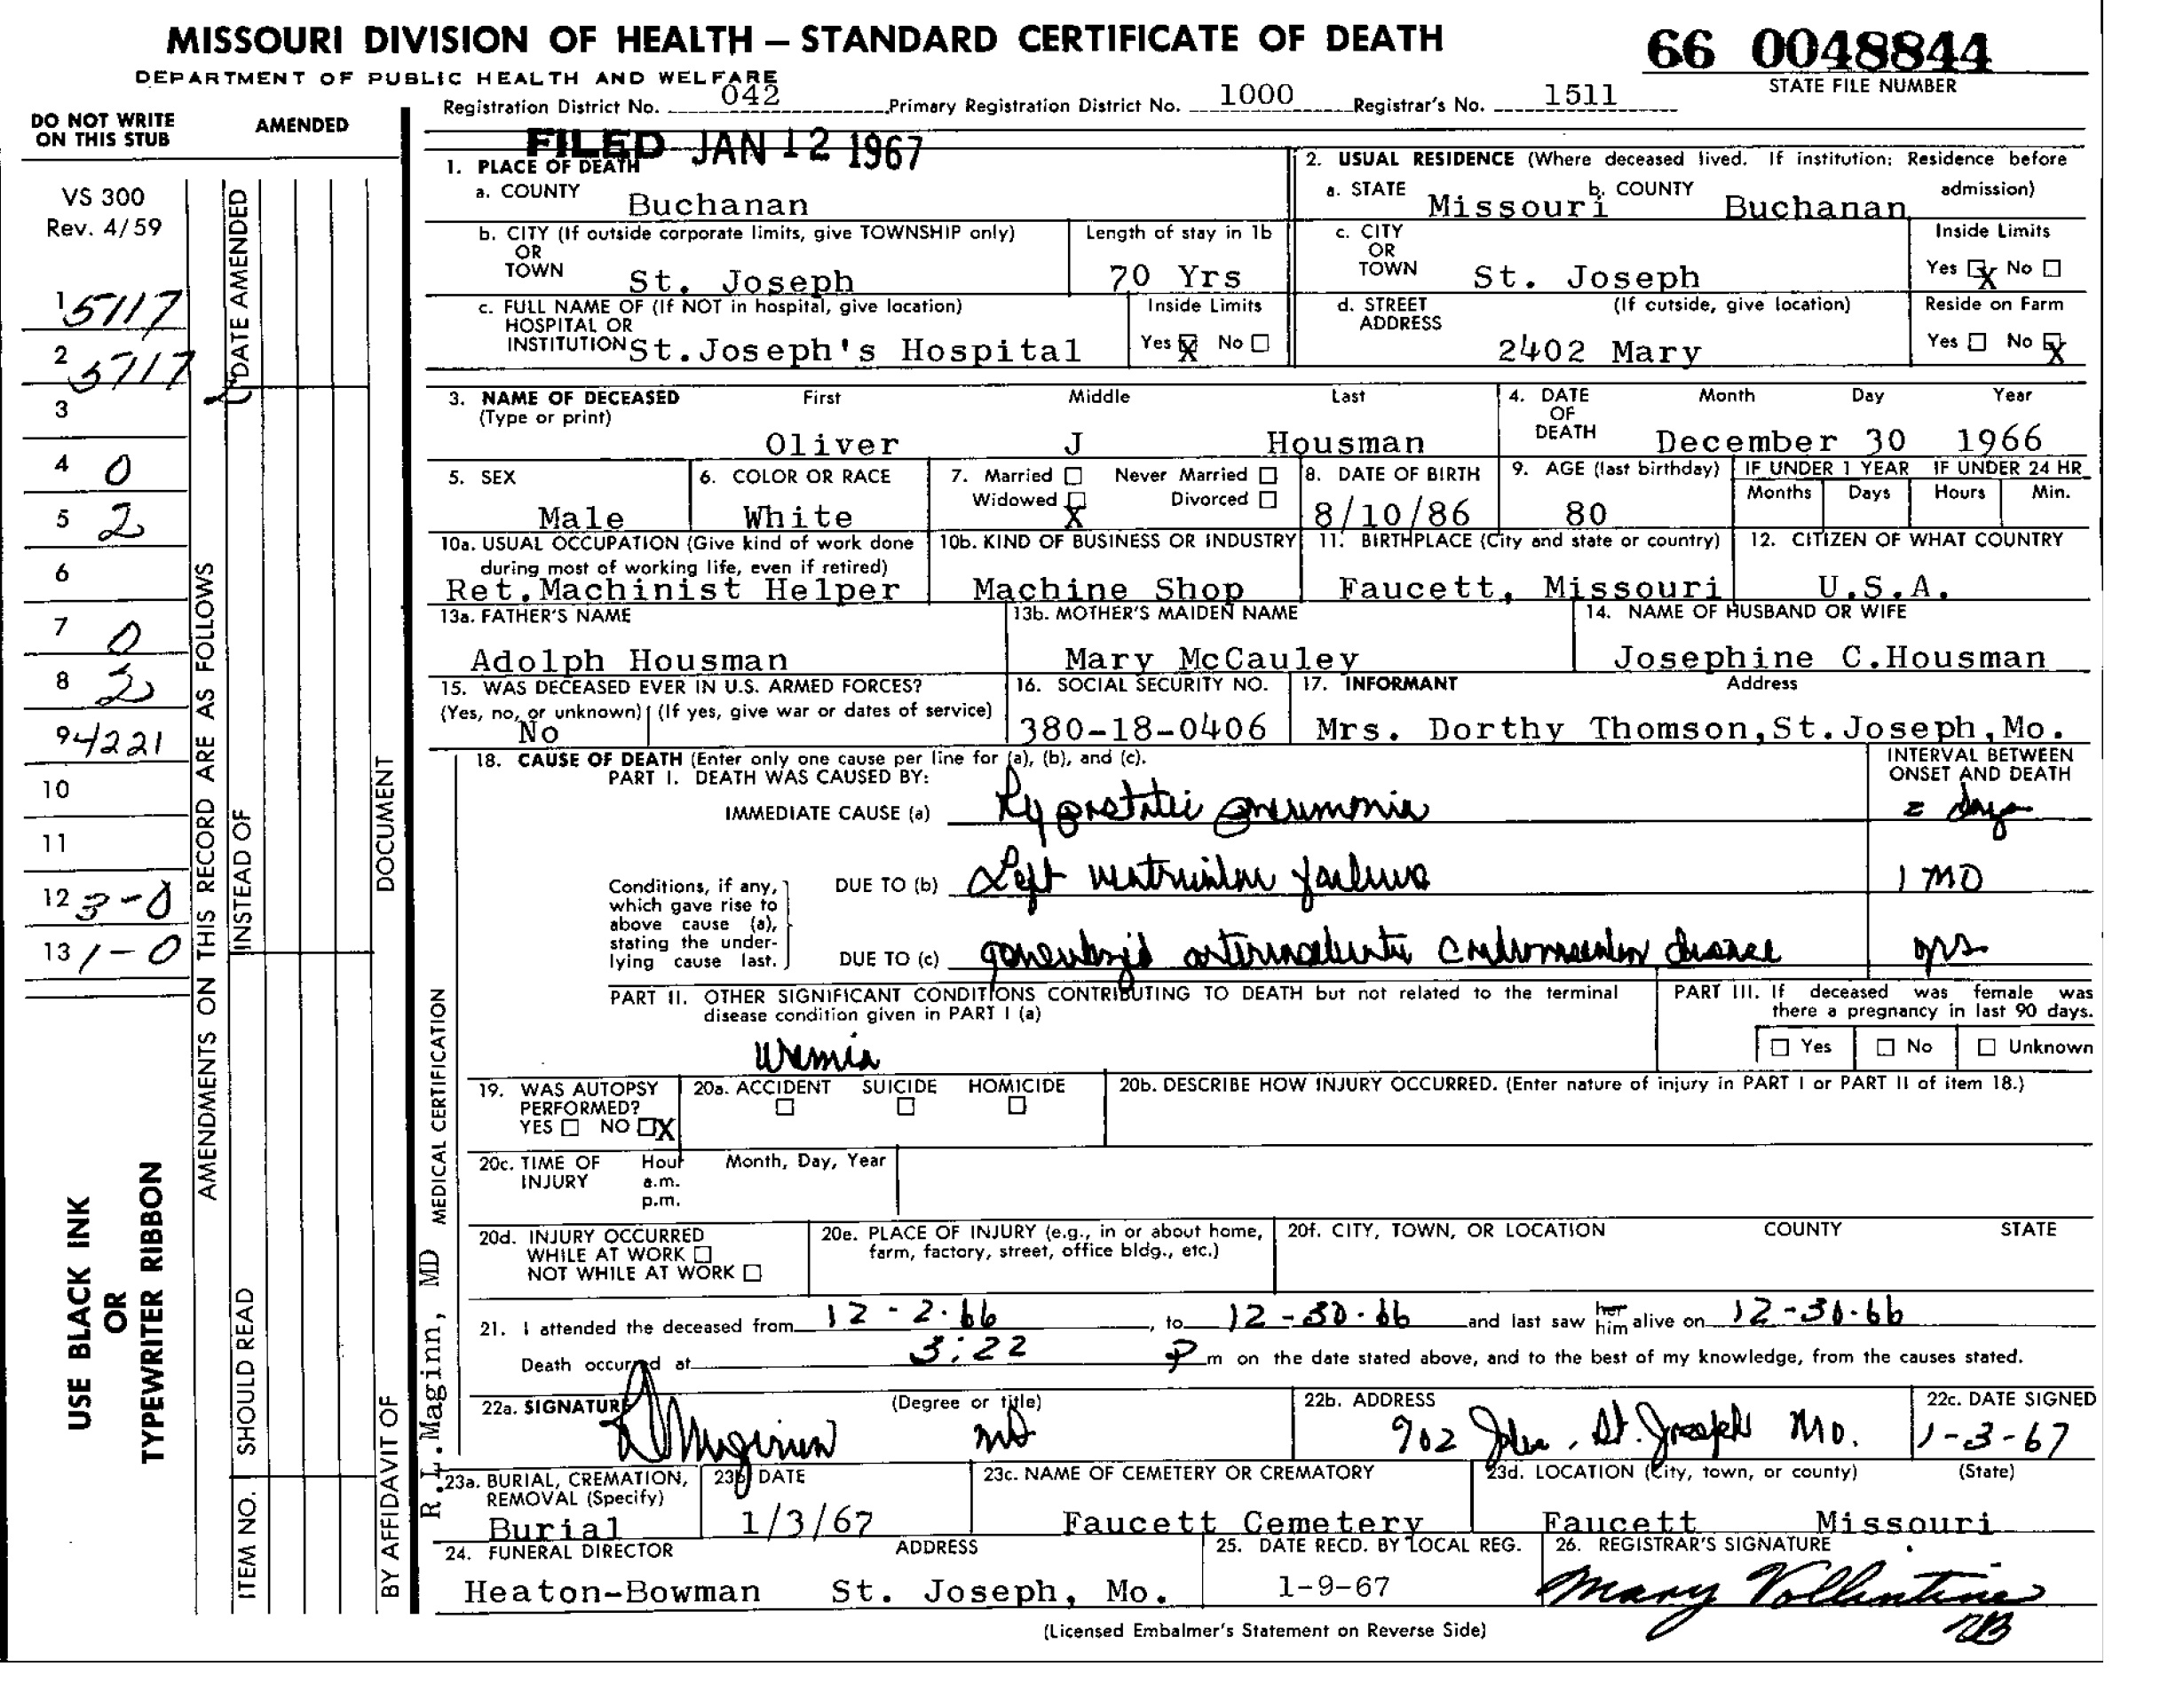 MISSOURI DIVISION OF HEALTH — STANDARD CERTIFICATE OF DEATH
66 0048844
DEPARTMENT OF PUBLIC HEALTH AND WELFARE
STATE FILE NUMBER
Registration District No. 042 Primary Registration District No. 1000 Registrar's No. 1511
DO NOT WRITE ON THIS STUB
AMENDED
FILED JAN 12 1967
VS 300
Rev. 4/59
1 5117
2 5117
3
4 0
5 2
6
7 0
8 2
9 4221
10
11
12 3-0
13 1-0
USE BLACK INK
OR
TYPEWRITER RIBBON
AMENDMENTS ON THIS RECORD ARE AS FOLLOWS
DATE AMENDED
INSTEAD OF
SHOULD READ
ITEM NO.
DOCUMENT
BY AFFIDAVIT OF
MEDICAL CERTIFICATION
R.L.Maginn, MD
1. PLACE OF DEATH
a. COUNTY Buchanan
b. CITY (If outside corporate limits, give TOWNSHIP only)
OR
TOWN St. Joseph
Length of stay in 1b
70 Yrs
c. FULL NAME OF (If NOT in hospital, give location)
HOSPITAL OR
INSTITUTION St.Joseph's Hospital
Inside Limits
Yes X No
2. USUAL RESIDENCE (Where deceased lived. If institution: Residence before admission)
a. STATE Missouri b. COUNTY Buchanan
c. CITY
OR
TOWN St. Joseph
Inside Limits
Yes X No
d. STREET ADDRESS (If outside, give location)
2402 Mary
Reside on Farm
Yes No X
3. NAME OF DECEASED
(Type or print)
First Middle Last
Oliver J Housman
4. DATE OF DEATH
Month Day Year
December 30 1966
5. SEX
Male
6. COLOR OR RACE
White
7. Married Never Married
Widowed X Divorced
8. DATE OF BIRTH
8/10/86
9. AGE (last birthday)
80
IF UNDER 1 YEAR
Months Days
IF UNDER 24 HR
Hours Min.
10a. USUAL OCCUPATION (Give kind of work done
during most of working life, even if retired)
Ret.Machinist Helper
10b. KIND OF BUSINESS OR INDUSTRY
Machine Shop
11. BIRTHPLACE (City and state or country)
Faucett, Missouri
12. CITIZEN OF WHAT COUNTRY
U.S.A.
13a. FATHER'S NAME
Adolph Housman
13b. MOTHER'S MAIDEN NAME
Mary McCauley
14. NAME OF HUSBAND OR WIFE
Josephine C.Housman
15. WAS DECEASED EVER IN U.S. ARMED FORCES?
(Yes, no, or unknown) (If yes, give war or dates of service)
No
16. SOCIAL SECURITY NO.
380-18-0406
17. INFORMANT Address
Mrs. Dorthy Thomson,St.Joseph,Mo.
18. CAUSE OF DEATH (Enter only one cause per line for (a), (b), and (c).
PART I. DEATH WAS CAUSED BY:
INTERVAL BETWEEN
ONSET AND DEATH
IMMEDIATE CAUSE (a) Hypostatic pneumonia 2 days
Conditions, if any,
which gave rise to
above cause (a),
stating the under-
lying cause last.
DUE TO (b) Left ventricular failure 1 MO
DUE TO (c) generalized arteriosclerotic cardiovascular disease yrs
PART II. OTHER SIGNIFICANT CONDITIONS CONTRIBUTING TO DEATH but not related to the terminal
disease condition given in PART I (a)
Uremia
PART III. If deceased was female was
there a pregnancy in last 90 days.
Yes No Unknown
19. WAS AUTOPSY
PERFORMED?
YES NO X
20a. ACCIDENT SUICIDE HOMICIDE
20b. DESCRIBE HOW INJURY OCCURRED. (Enter nature of injury in PART I or PART II of item 18.)
20c. TIME OF INJURY
Hour Month, Day, Year
a.m.
p.m.
20d. INJURY OCCURRED
WHILE AT WORK
NOT WHILE AT WORK
20e. PLACE OF INJURY (e.g., in or about home,
farm, factory, street, office bldg., etc.)
20f. CITY, TOWN, OR LOCATION COUNTY STATE
21. I attended the deceased from 12-2-66, to 12-30-66 and last saw her him alive on 12-30-66
Death occurred at 3:22 P m on the date stated above, and to the best of my knowledge, from the causes stated.
22a. SIGNATURE (Degree or title)
RL Maginn MD
22b. ADDRESS
902 Jules, St. Joseph Mo.
22c. DATE SIGNED
1-3-67
23a. BURIAL, CREMATION,
REMOVAL (Specify)
Burial
23b. DATE
1/3/67
23c. NAME OF CEMETERY OR CREMATORY
Faucett Cemetery
23d. LOCATION (City, town, or county) (State)
Faucett Missouri
24. FUNERAL DIRECTOR ADDRESS
Heaton-Bowman St. Joseph, Mo.
25. DATE RECD. BY LOCAL REG.
1-9-67
26. REGISTRAR'S SIGNATURE
Mary Vollintine
(Licensed Embalmer's Statement on Reverse Side)